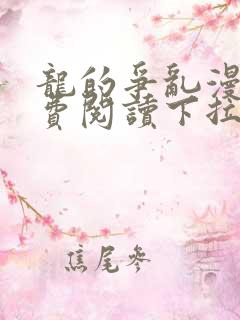 龍的爭亂漫
費閱讀下拉
焦尾參